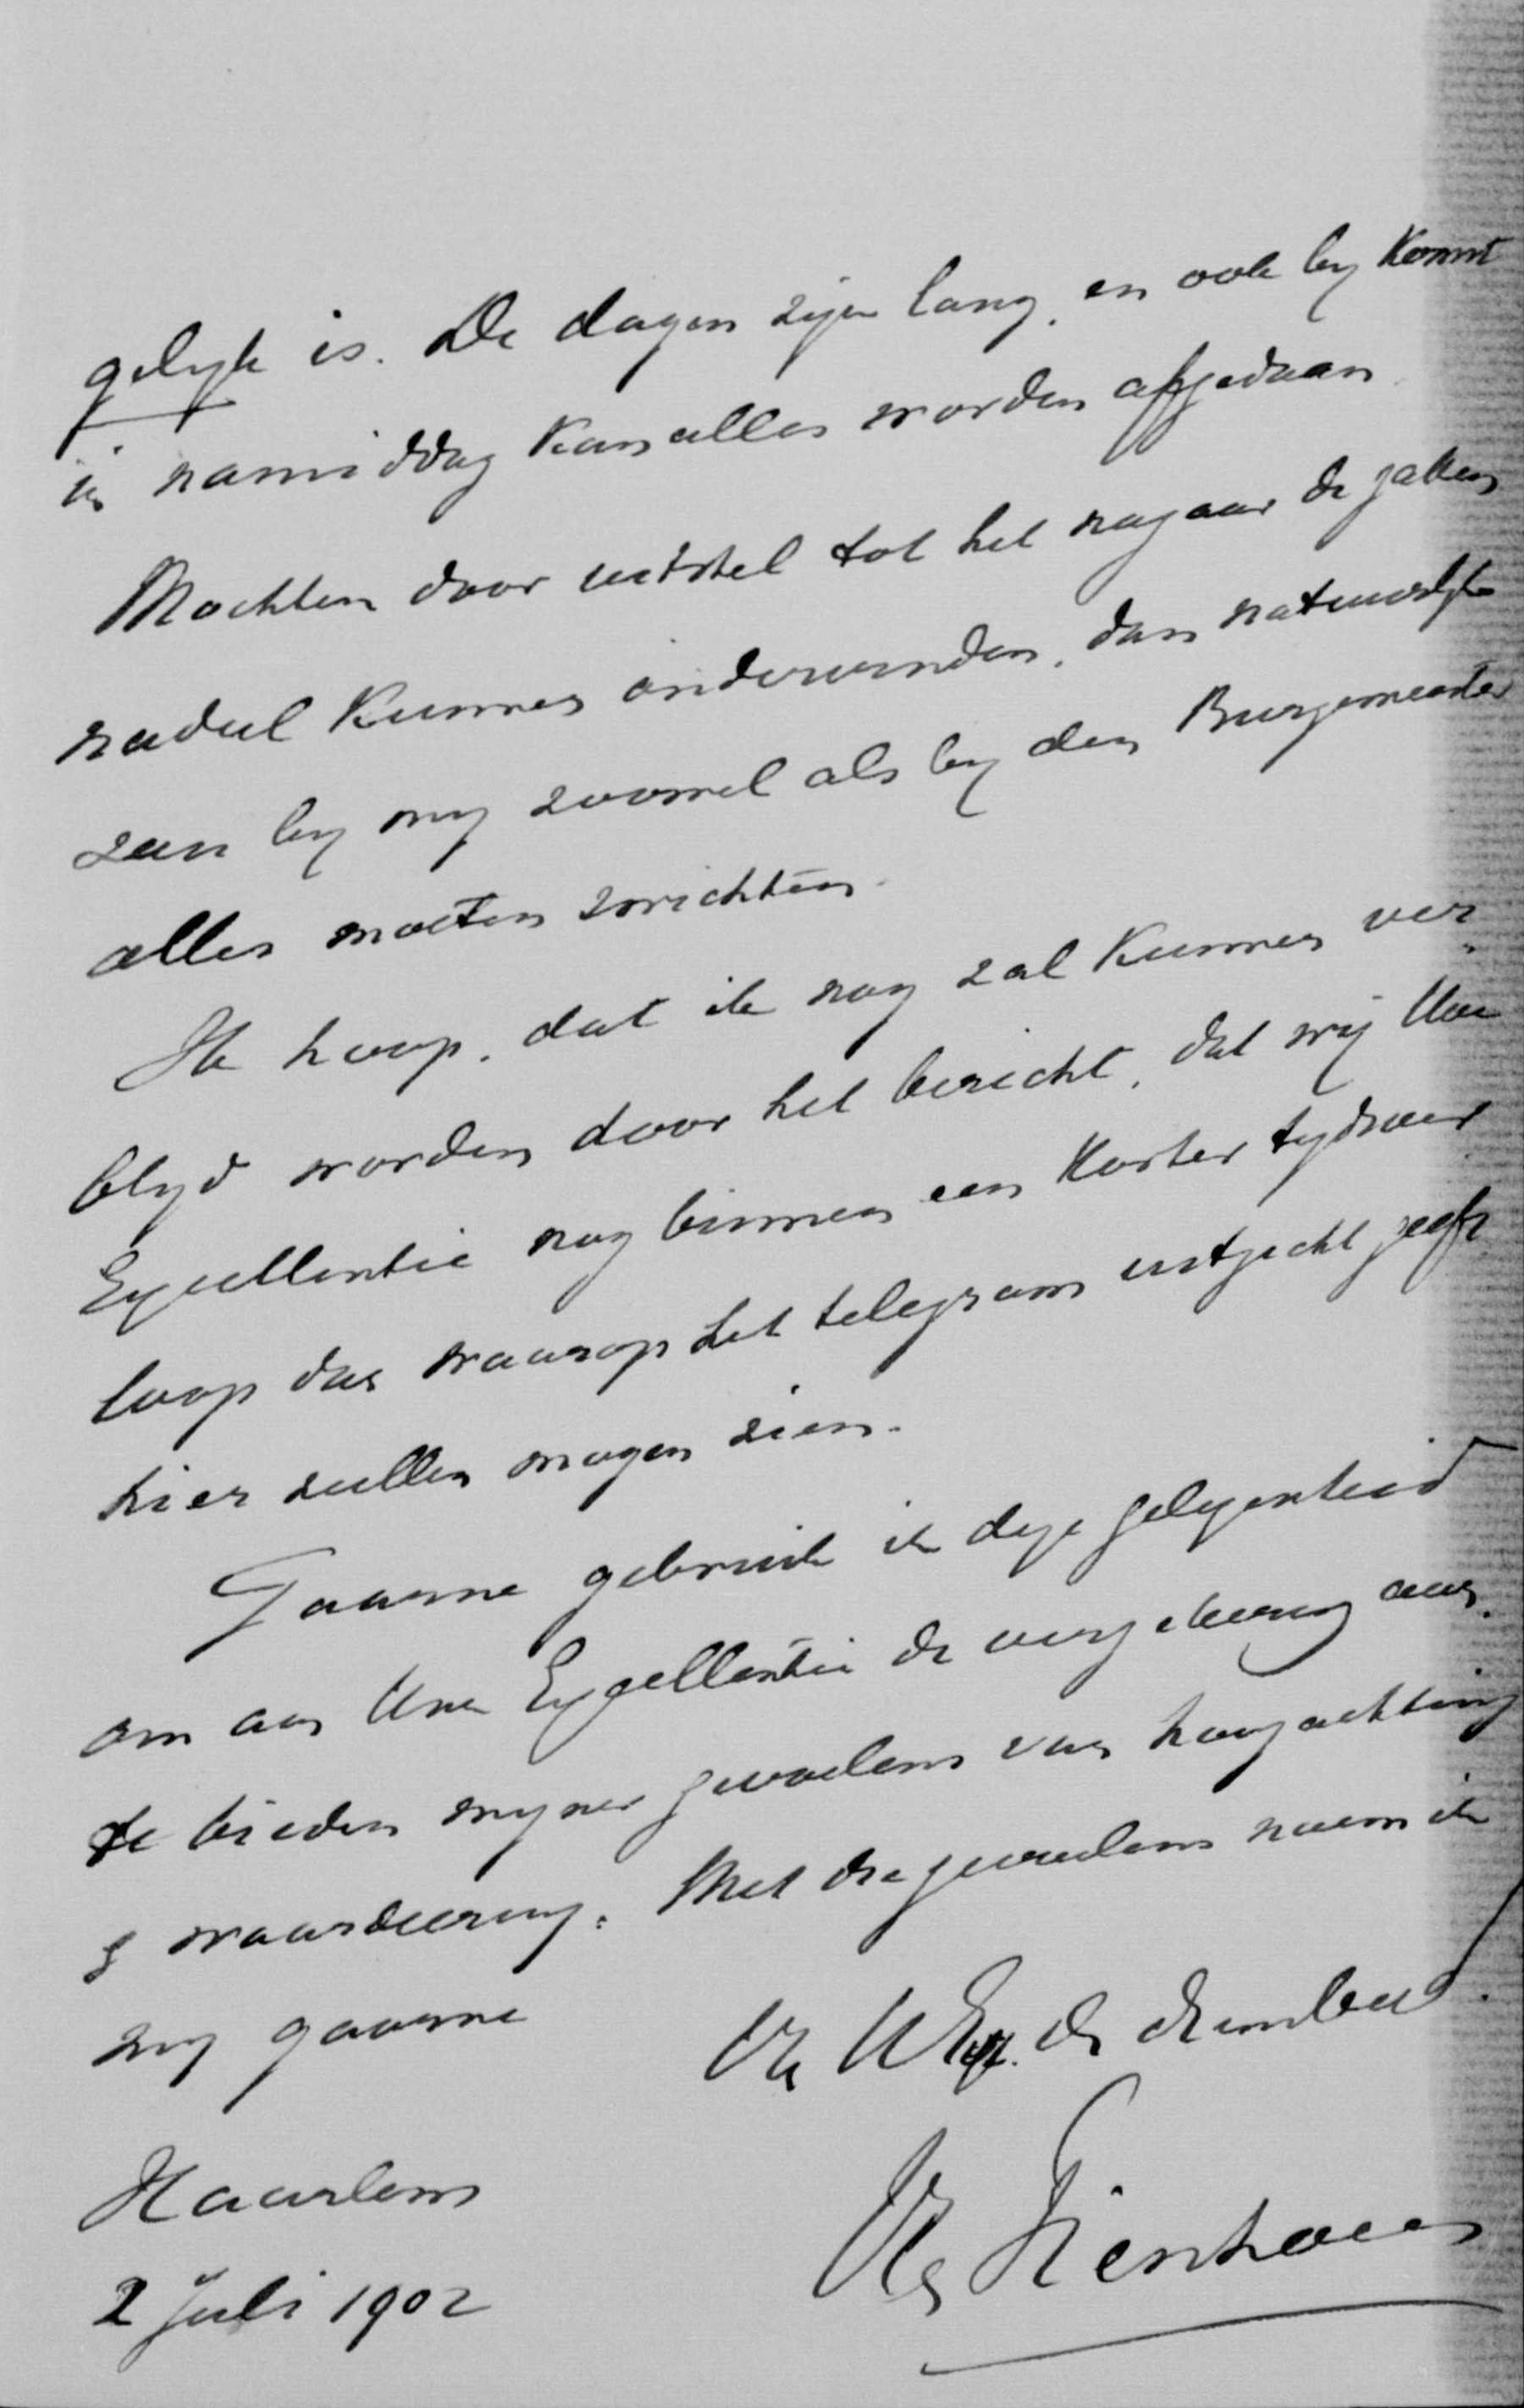 gelyk is. De dagen zyn lang, en ook by komst
in namiddag kan alles worden afgedaan.
Mochten door uitstel tot het najaar de zaken
nadeel kunnen ondervinden, dan natuurlyk
zou by my zoowel als by den Burgemeester
alles moeten zwichten.
Ik hoop, dat ik nog zal kunnen ver
blyd worden door het bericht, dat wij Uwe
Excellentie nog binnen een korter tydsver
loop dan waarop het telegram uitzicht geeft
hier zullen mogen zien.
Gaarne gebruik ik deze gelegenheid
om aan Uwe Excellentie de verzekering aan
te bieden myner gevoelens van hoogachting
& waardeering. Met die gevoelens noem ik
my gaarne
Uw Exc. dw dienaar
Haarlem
2 Juli 1902